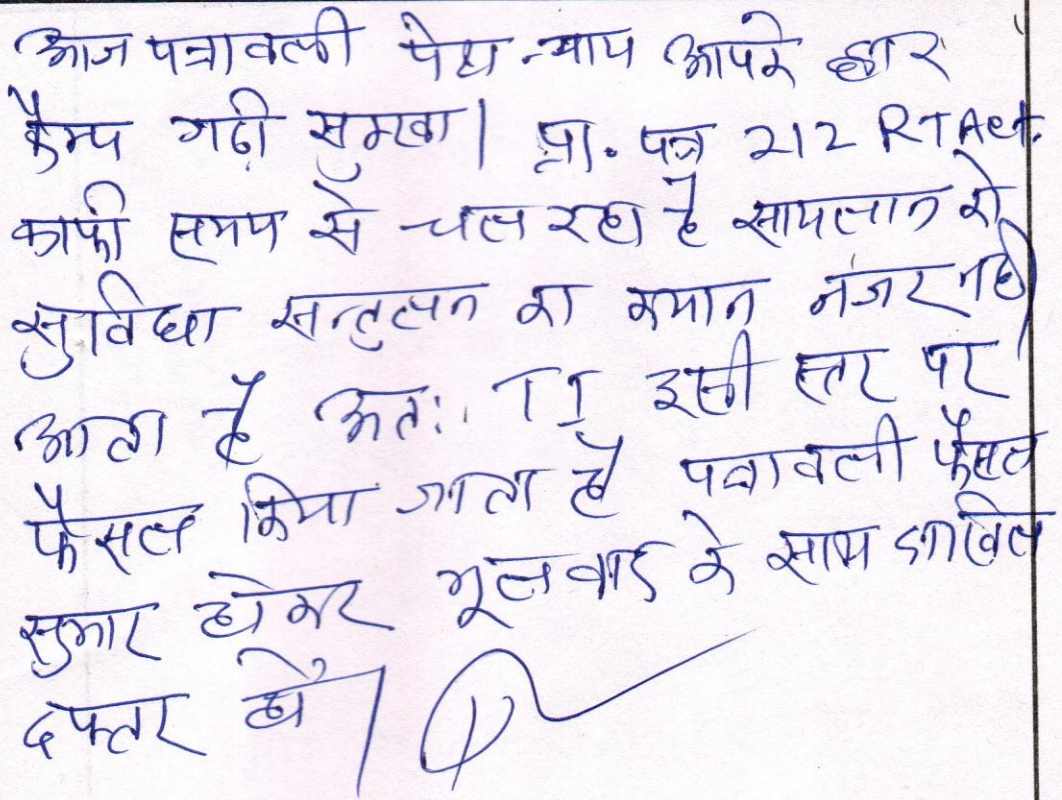 आज पत्रावली पेश न्याय आपके द्वार
कैम्प गढी सुमखा। प्रा. पत्र 212 RT Act.
काफी समय से चल रहा है सायलान को
सुविधा सन्तुलन का नजर नही
आता है अतः TI इसी स्तर पर
फैसल किया जाता है पत्रावली फैसल
सुमार होकर मूलवाद के साथ दाखिल
दफ्तर हो।